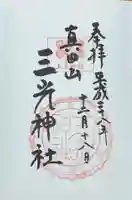 奉拝 平成年
十二月十八日
真田山
三光神社